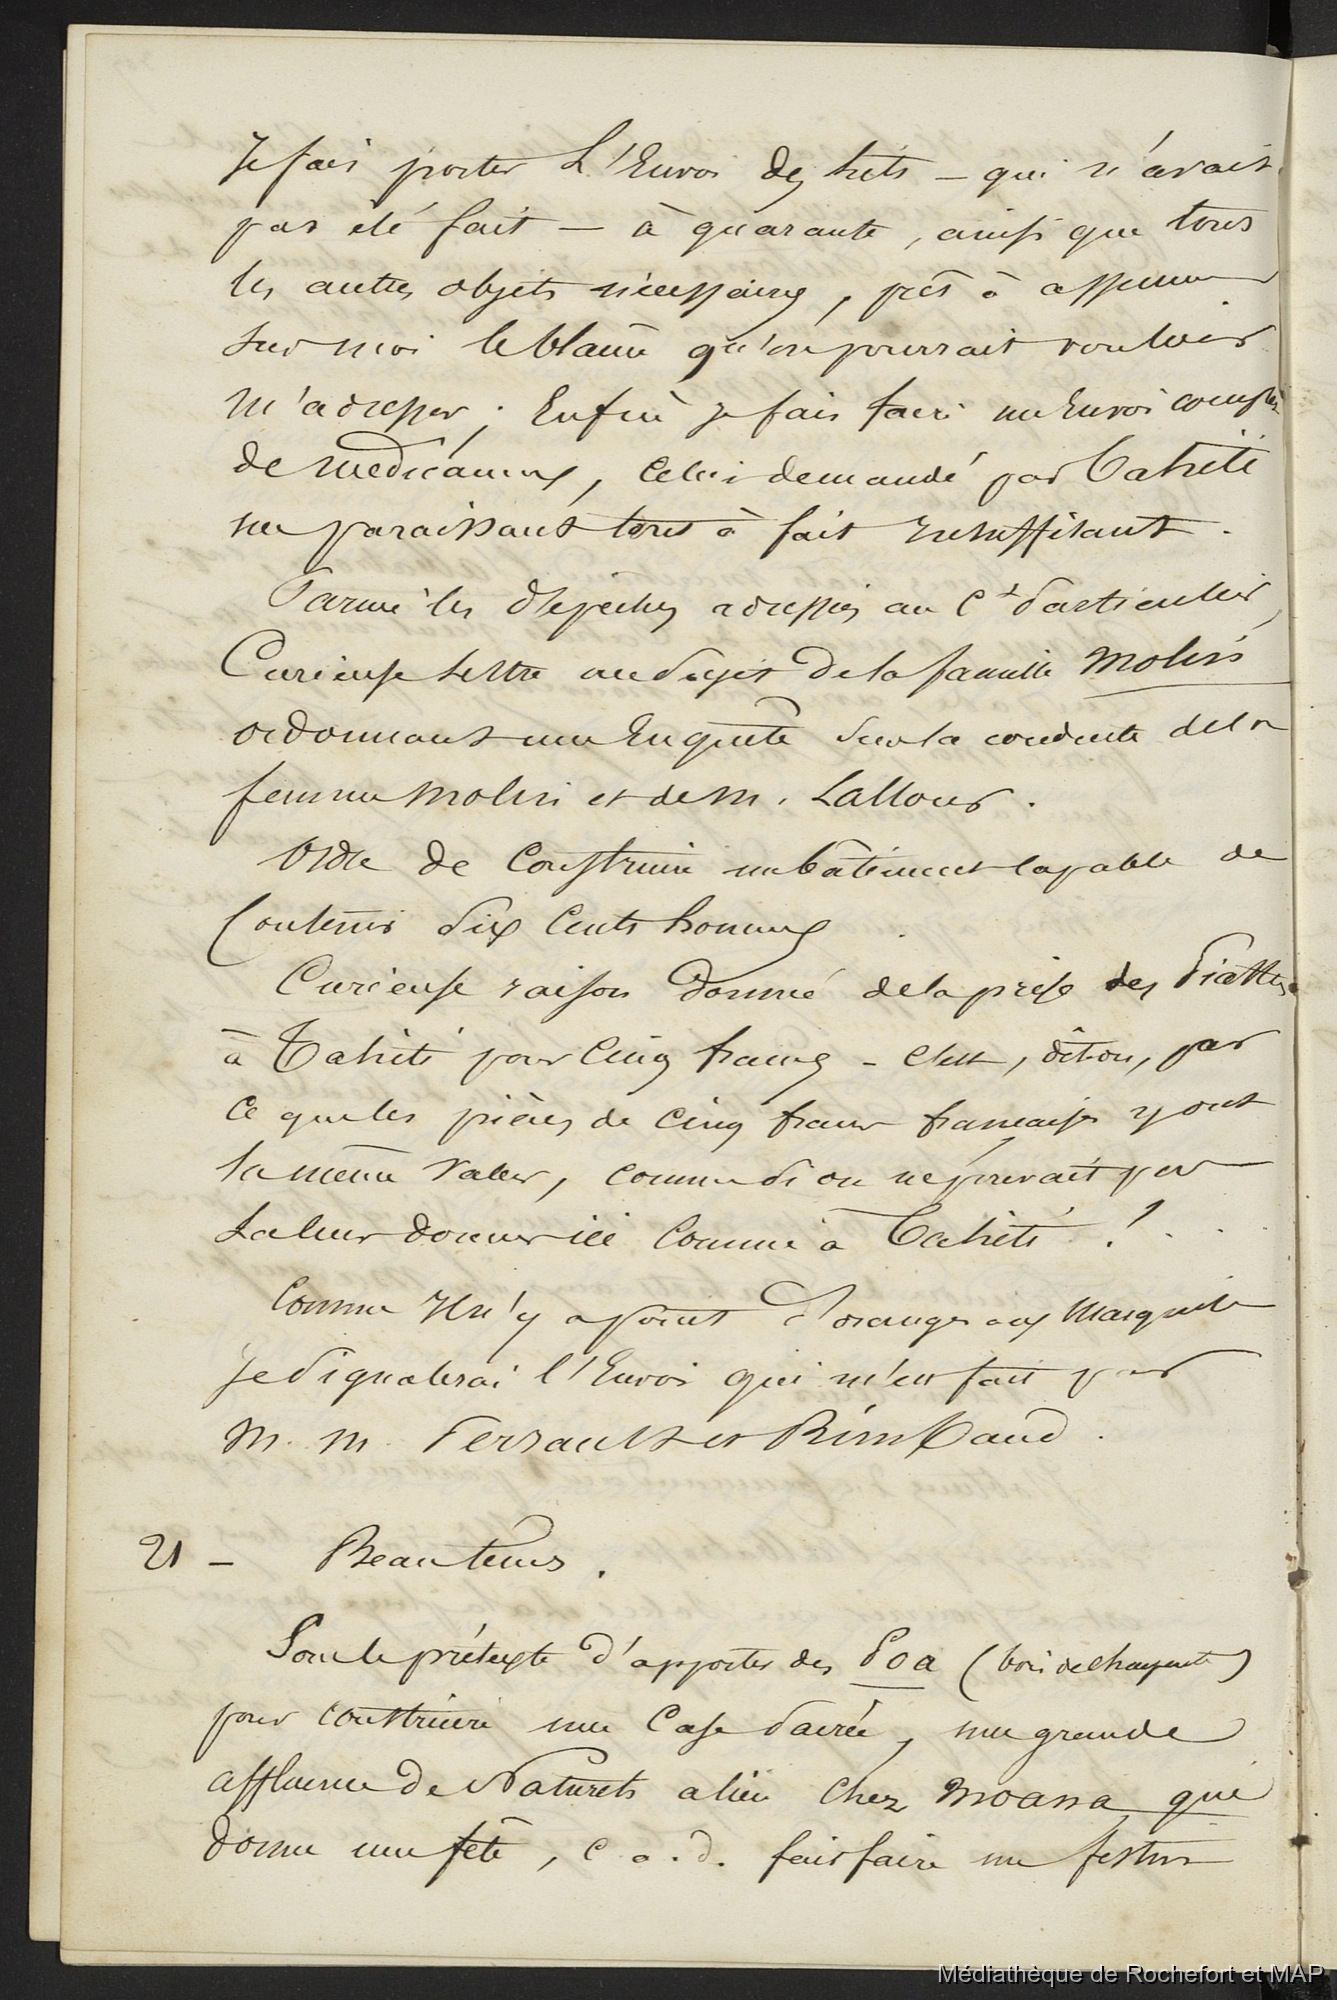 Je fais porter L'Envoi des lits – qui n'avait
pas été fait – à quarante, ainsi que tous
les autres objets nécessaires, prêt à assumer
sur moi le blâme qu'on pourrait vouloir
m'adresser ; Enfin je fais faire un Envoi complet
de médicamens, Celui demandé par Tahiti
me paraissant tout à fait insuffisant.
Parmi les dépêches adressées au Ct Particulier,
Curieuse lettre au sujet de la famille Molini
ordonnant une Enquête sur la conduite de la
femme Molini et de M. Lallour.
Ordre de Construire un bâtiment capable de
Contenir Six Cents hommes.
Curieuse raison donné de la prise des Piastres
à Tahiti pour Cinq francs – C'est, dit-on, par
ce que les pièces de Cinq francs françaises y ont
la même valeur, comme si on ne pouvait pas
la leur donner ici Comme à Tahiti !...
Comme Il n'y a point d'oranges aux Marquises
Je signalerai l'Envoi qui m'en fait par
M. M. Perrault et Rimbaud.
21 – Beau tems.
Sous le prétexte d'apporter des Poa (bois de charpente)
pour construire une Case Sacrée, une grande
affluence de Naturels a lieu Chez Moana qui
donne une fête, c.a.d. fais faire un festin
Médiathèque de Rochefort et MAP